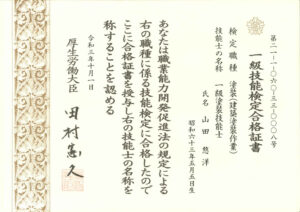 第二一一〇六〇-三三-一〇〇〇八号
一級技能検定合格証書
検定職種 塗装（建築塗装作業）
技能士の名称 一級塗装技能士
氏名 山田 悠洋
昭和六十三年五月五日生
あなたは職業能力開発促進法の規定による
右の職種に係る技能検定に合格したので
ここに合格証書を授与し右の技能士の名称を
称することを認める
令和三年十月一日
厚生労働大臣 田村憲久